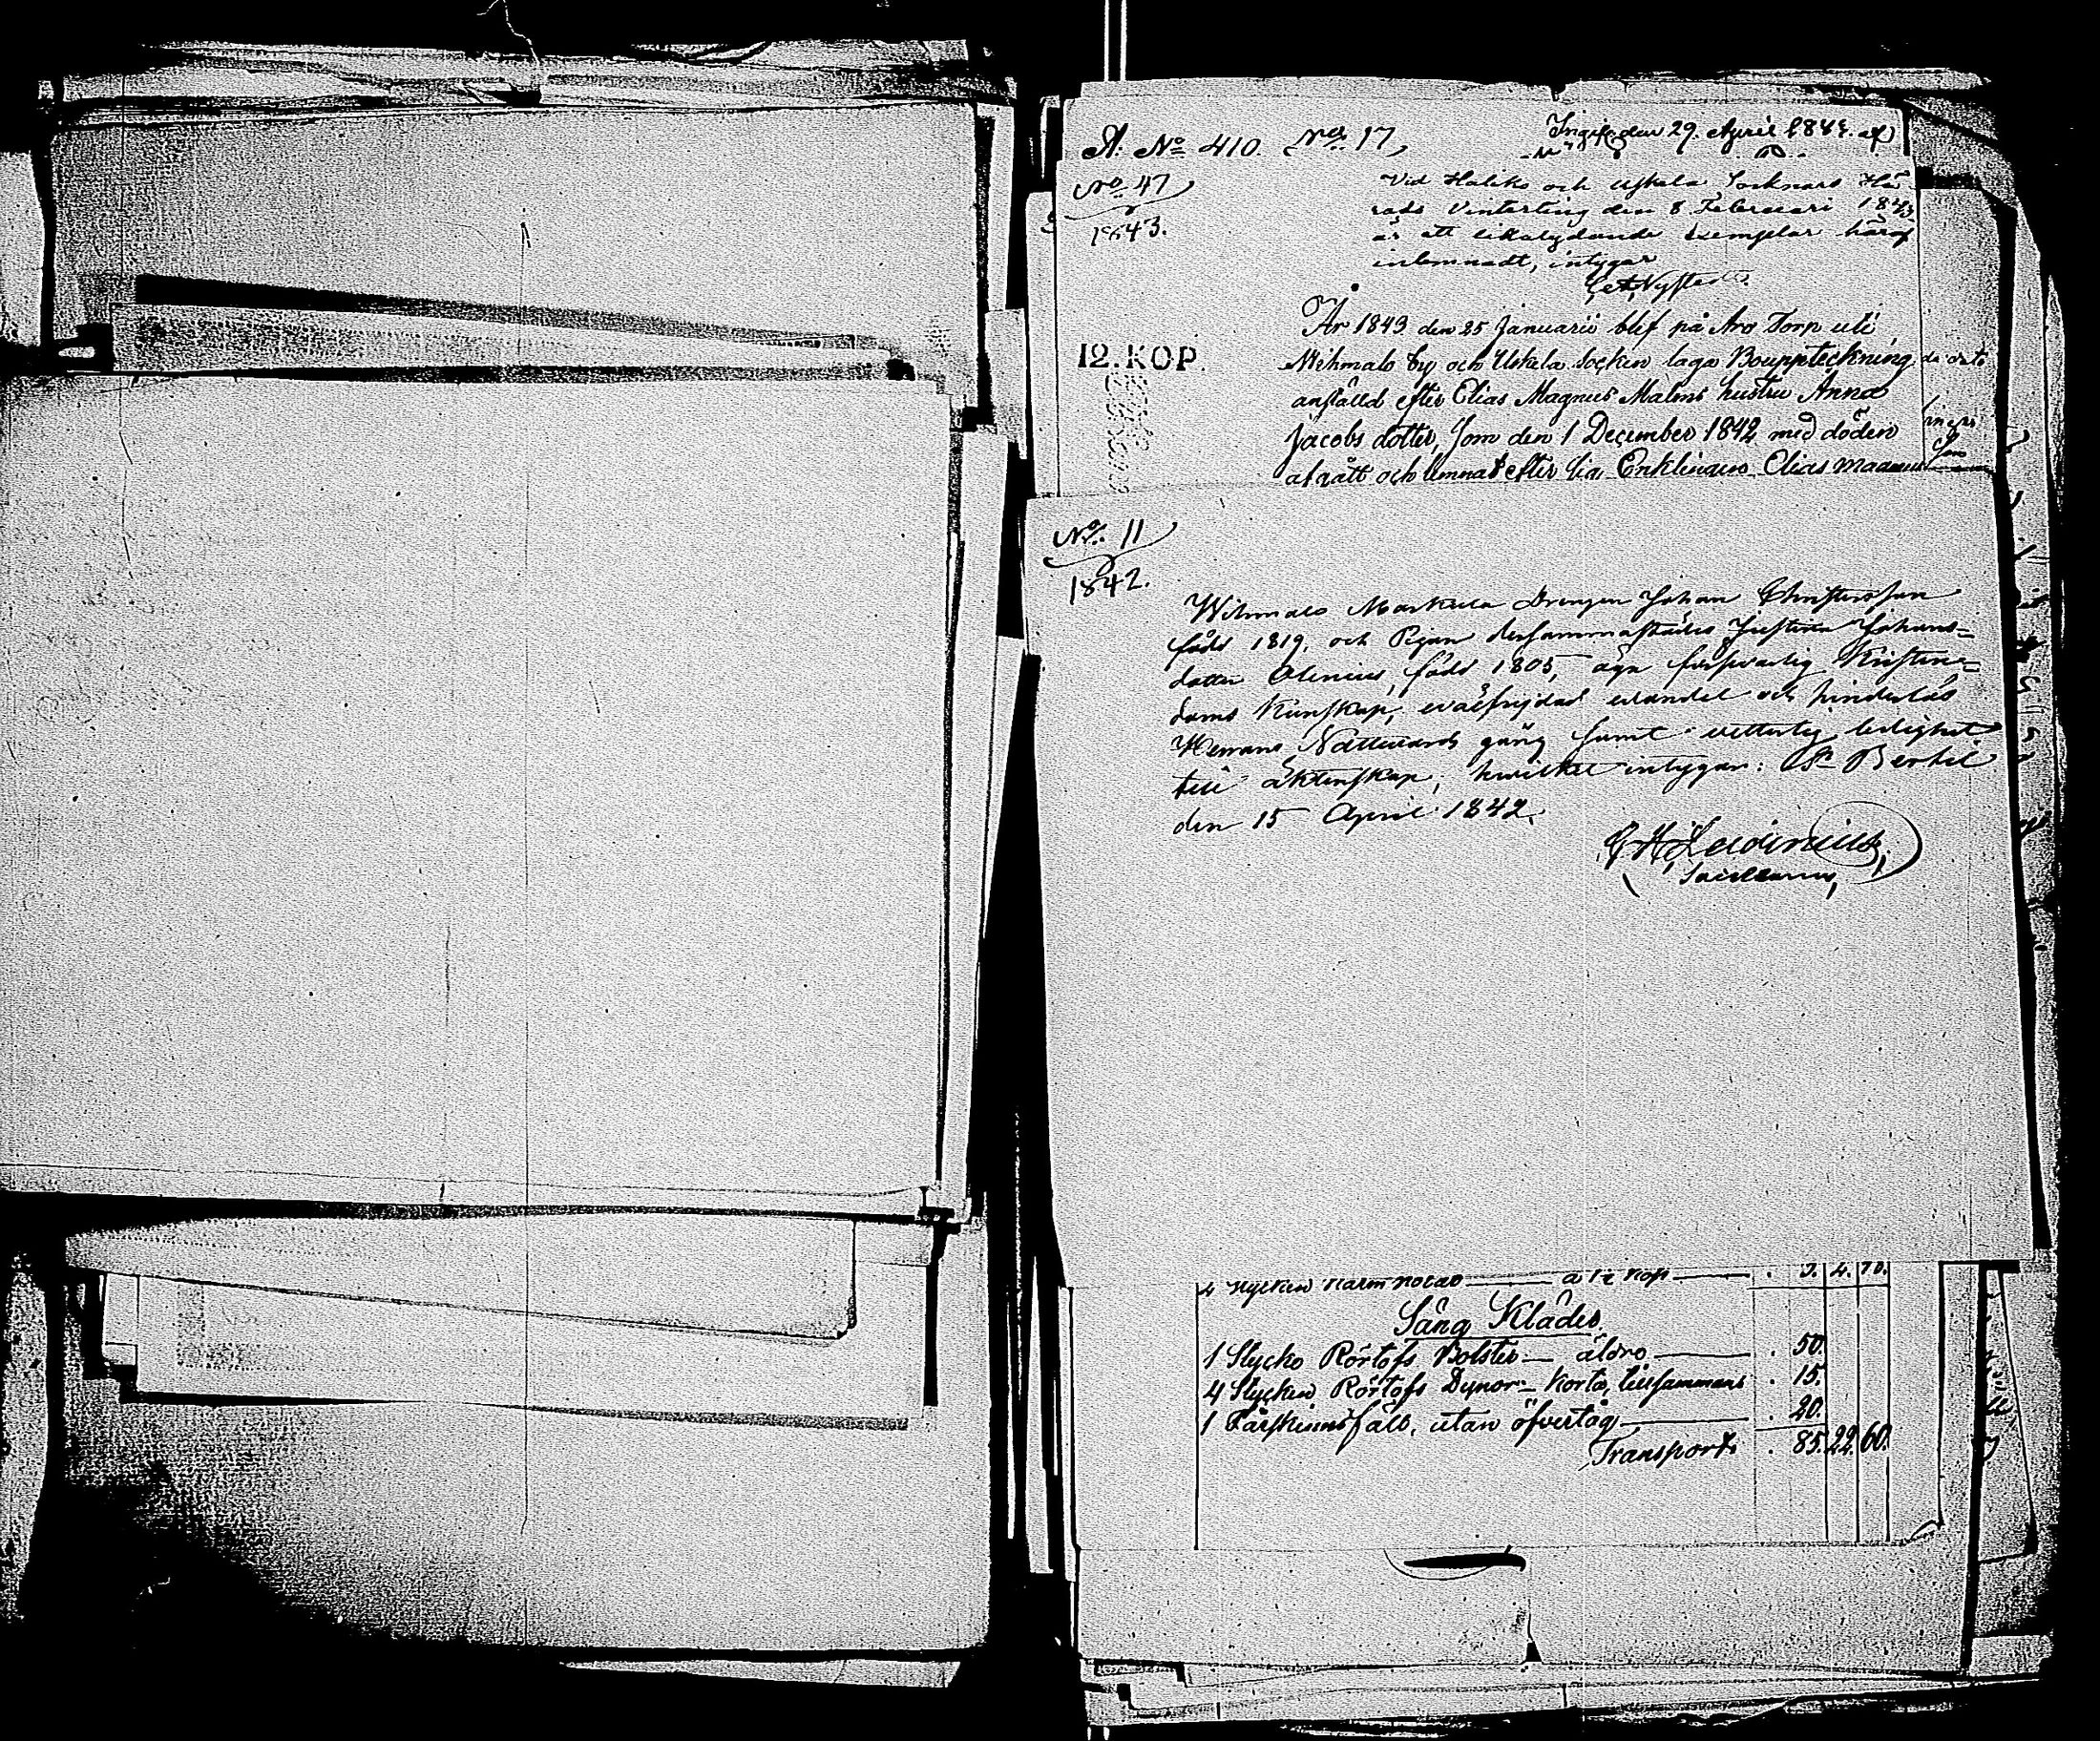 A. No 410. 17
Ingif. den 29. April
No 47
1843.
Vid Haliko och Uskela Socknars Hä
rads Vinterting den 8 Februari 1843
är ett likalydande exemplar häraf
inlemnadt, intygar
12. KOP.
År 1843 den 25 Januarii blef på Aro Torp uti
Wihmalo by och Uskela Socken laga Bouppteckning
anstäld efter Elias Magnus Malms hustru Anna
Jacobs dotter, som den 1 December 1842 med döden
afgått och lemnat efter sig Enklingen Elias Magnus
No 11
1842.
Wihmalo Markula Drengen Johan Christersson
född 1819, och Pigan dersammastädes Justina Johans=
dotter Alenius, född 1805, äga försvarlig Kristen=
doms Kunskap, oväfrijdad vandel och hinderlös
Herrans Nattvards gång samt vitterlig ledighet
till äktenskap; hvilket intygar: St Bertil
den 15 April 1842.
Sacellanus,
4 Stycken
Säng Kläder
1 Stycke Rörtofs Bolster äldre . 50.
4 Stycken Rörtofs Dynor korta, tillsammans . 15.
1 Fårskinnsfäll, utan öfvertåg . 20.
Transport . 85. 22. 60.